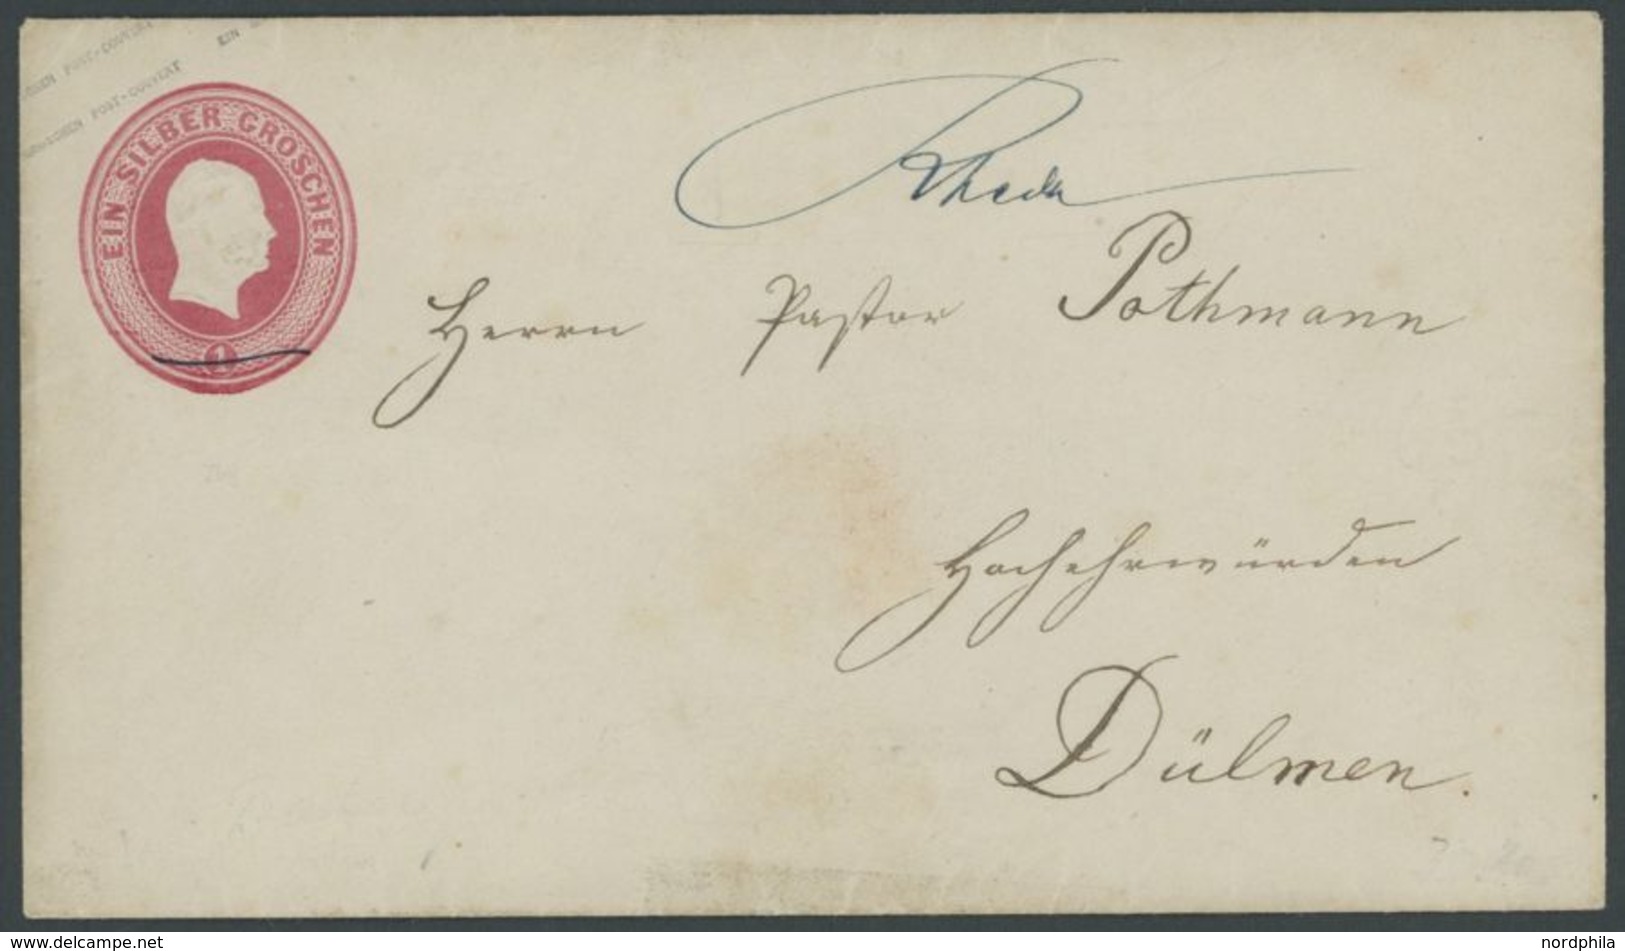 POST-COUVERT
EIN
GROSCHEN POST-COUVERT
EIN SILBER GROSCHEN
1
Rheda
Herrn Pastor Pothmann
Hochehrwürden
Dülmen.
www.delcampe.net
nordphila